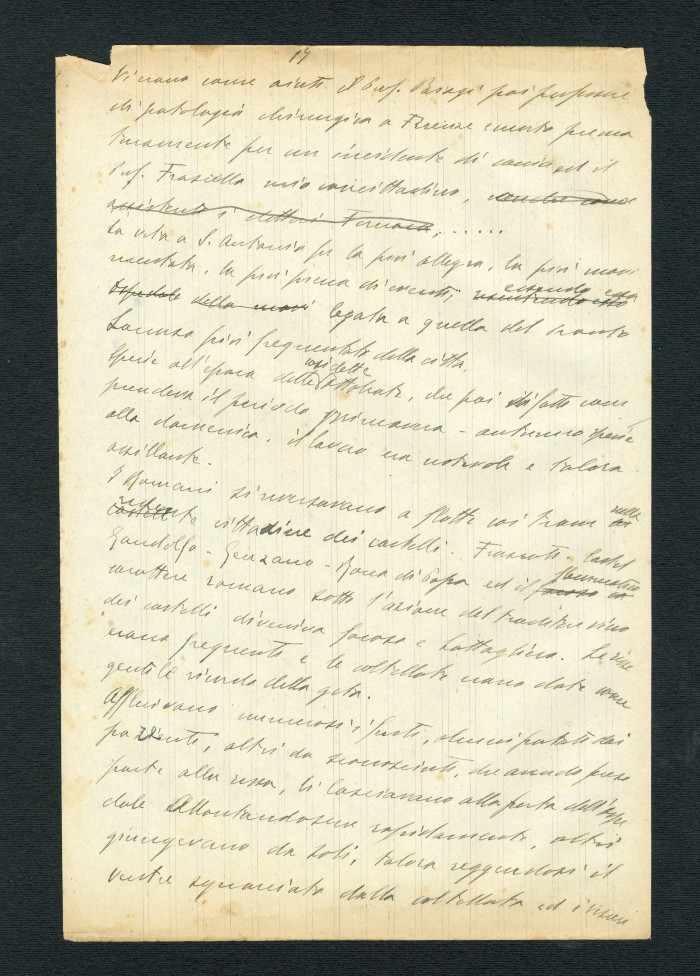 14
Vi erano come aiuti il Prof. Biagi poi professore
di patologia chirurgica a Firenze e morto prema
turamente per un incidente di caccia ed il
Prof. Frasiello mio concittadino, 
assistente i dottori
La vita a S. Antonio fu la più allegra, la più movi
mentata, la più piena di eventi, essendo essa
Ospedale della legata a quella del pronto
soccorso più frequentato della città.
Specie all'epoca delle cosidette ottobrate, che poi di fatti com
prendeva il periodo primavera - autunno specie
alla domenica, il lavoro era notevole e talora
assillante.
I Romani si riversavano a flotte coi trams nelle
ridenti cittadine dei castelli. Frascati - Castel
Gandolfo - Genzano - Rocca di Papa ed il
carattere romano sotto l'azione del traditore vino
dei castelli diveniva focoso e battagliero. Le risse
erano frequenti e le coltellate erano date come
gentile ricordo della gita.
Affluivano numerosi i feriti, alcuni portati dai
parenti, altri da sconosciuti, che avendo preso
parte alla rissa, li lasciavano alla porta dell'ospe
dale allontanandosene rapidamente, altri
giungevano da soli, talora reggendosi il
ventre squarciato dalla coltellata ed i visceri